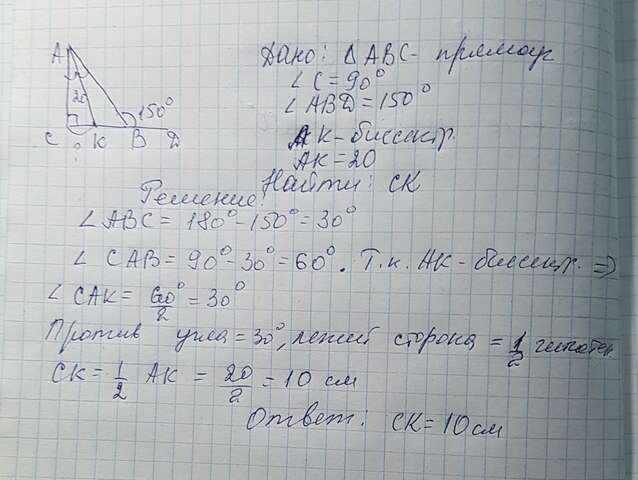 Дано: Δ ABC - прямоуг
∠ C = 90°
∠ ABD = 150°
AK - биссектр.
AK = 20
Найти: CK
A
20
150°
C K B D
?
Решение:
∠ ABC = 180° - 150° = 30°
∠ CAB = 90° - 30° = 60°. Т.к. AK - биссект. ⇒
∠ CAK = 60°/2 = 30°
Против угла = 30°, лежит сторона = 1/2 гипотен
CK = 1/2 AK = 20/2 = 10 см
Ответ: CK = 10 см